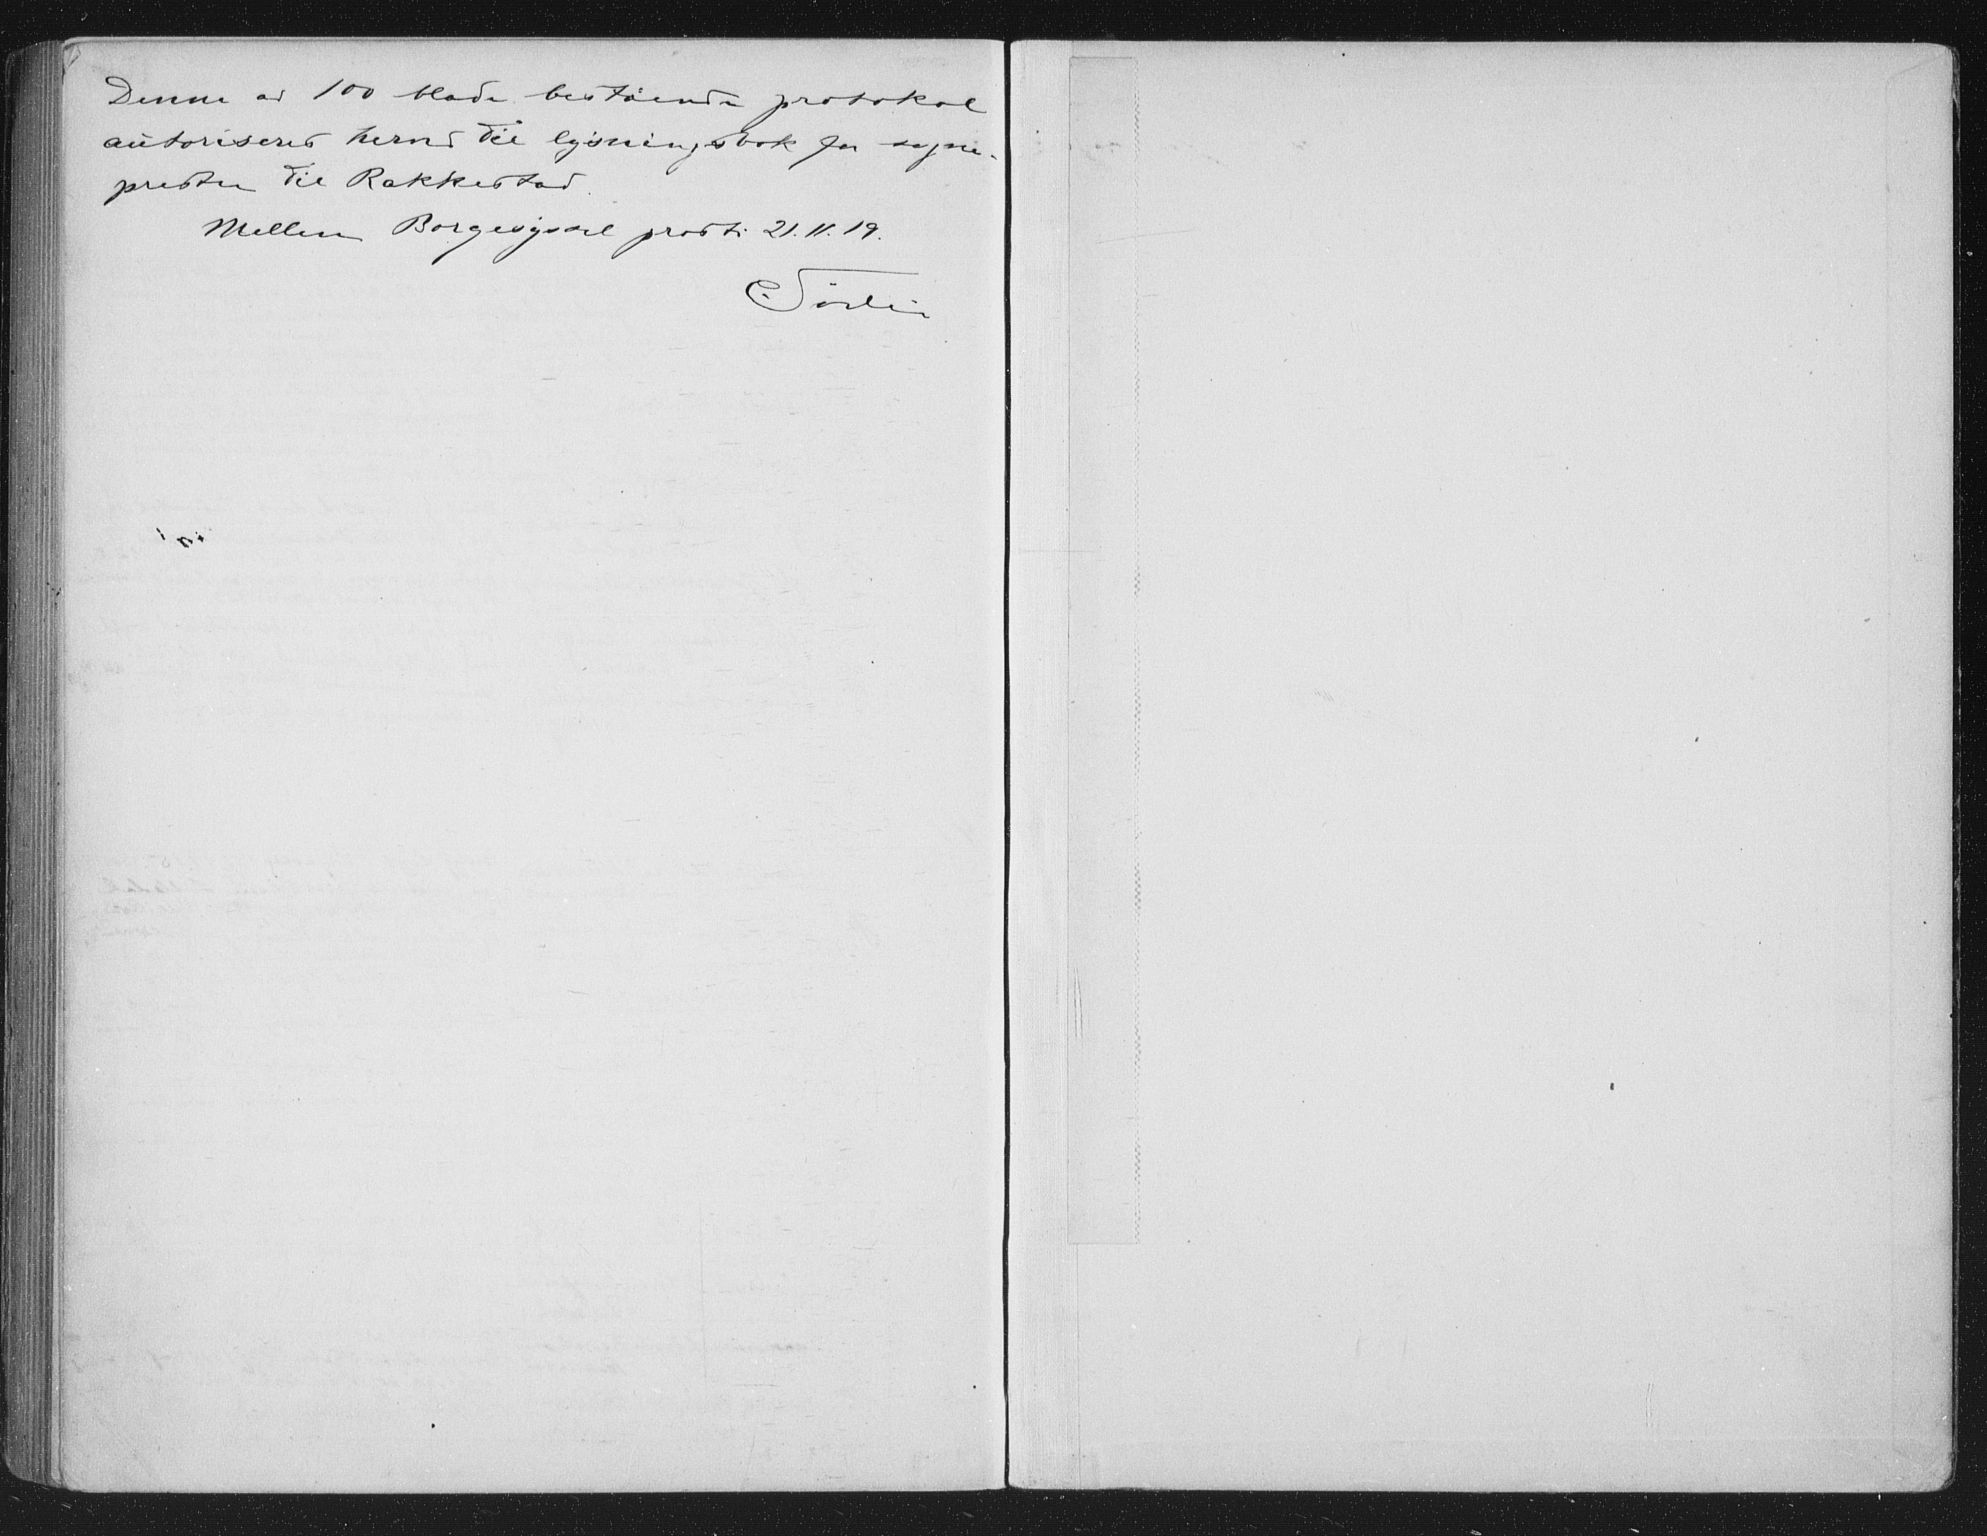 Denne av 100 blade bestående protokol
autoriseres herved til lysningsbok for sogne-
presten til Rakkestad.
Mellem Borgesyssel prosti 21.11.19.
C.